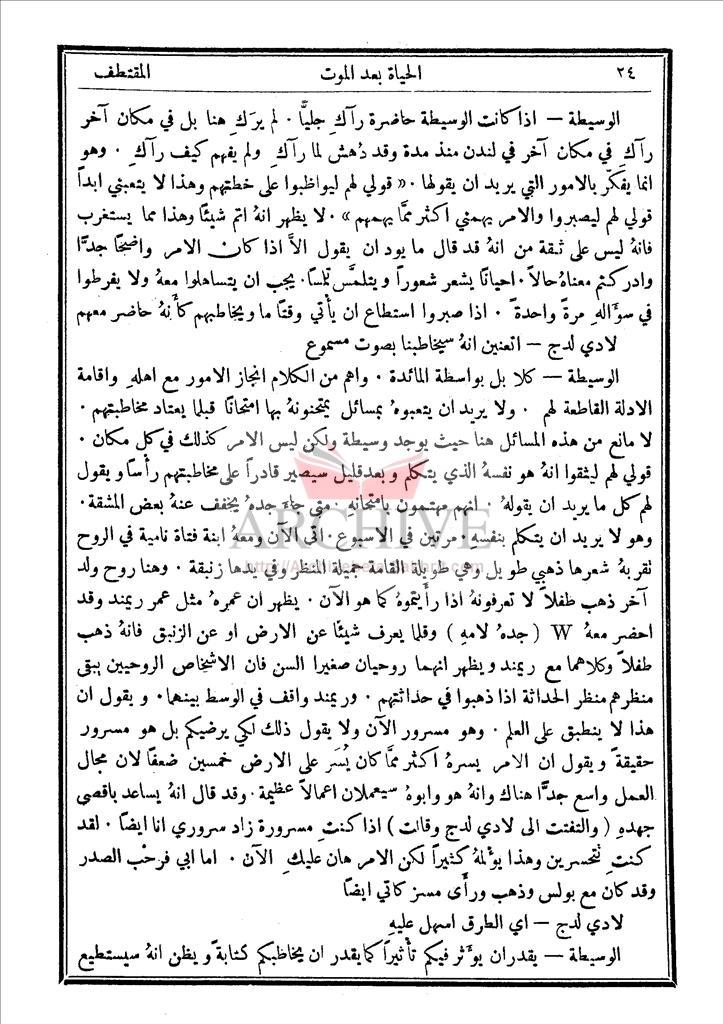 ٢٤ الحياة بعد الموت المقتطف
الوسيطة — اذا كانت الوسيطة حاضرة رآكِ جليًّا . لم يرَكِ هنا بل في مكان آخر
رآكِ في مكان آخر في لندن منذ مدة وقد دُهش لما رآكِ ولم يفهم كيف رآكِ . وهو
انما يفكّر بالامور التي يريد ان يقولها . « قولي لهم ليواظبوا على خطتهم وهذا لا يتعبني ابداً
قولي لهم ليصبروا والامر يهمني اكثر ممَّا يهمهم » . لا يظهر انهُ اتم شيئًا وهذا مما يستغرب
فانهُ ليس على ثقة من انهُ قد قال ما يود ان يقول الاَّ اذا كان الامر واضحًا جدًّا
وادركتم معناهُ حالاً . احيانًا يشعر شعوراً ويتلمَّس تلمّسًا . يجب ان يتساهلوا معهُ ولا يفرطوا
في سؤالهِ مرةً واحدةً . اذا صبروا استطاع ان يأتي وقتًا ما ويخاطبهم كأنهُ حاضر معهم
لادي لدج — اتعنين انهُ سيخاطبنا بصوت مسموع
الوسيطة — كلا بل بواسطة المائدة . واهم من الكلام انجاز الامور مع اهلهِ واقامة
الادلة القاطعة لهم . ولا يريد ان يتعبوهُ بمسائل يمتحنونهُ بها امتحانًا قبلما يعتاد مخاطبتهم .
لا مانع من هذه المسائل هنا حيث يوجد وسيطة ولكن ليس الامر كذلك في كل مكان .
قولي لهم ليثقوا انهُ هو نفسهُ الذي يتكلم وبعد قليل سيصير قادراً على مخاطبتهم رأسًا ويقول
لهم كل ما يريد ان يقولهُ . انهم مهتمون بامتحانهِ . متى جاءَ جدهُ يخفف عنهُ بعض المشقة .
وهو لا يريد ان يتكلم بنفسهِ . مرتين في الاسبوع . اتى الآن ومعهُ ابنة فتاة نامية في الروح
نقربهُ شعرها ذهبي طويل وهي طويلة القامة جميلة المنظر وفي يدها زنبقة . وهنا روح ولد
آخر ذهب طفلاً لا تعرفونهُ اذا رأيتموهُ كما هو الآن . يظهر ان عمرهُ مثل عمر ريمند وقد
احضر معهُ W ( جدهُ لامهِ ) وقلما يعرف شيئًا عن الارض او عن الزنبق فانهُ ذهب
طفلاً وكلاهما مع ريمند ويظهر انهما روحيان صغيرا السن فان الاشخاص الروحيين يبقى
منظرهم منظر الحداثة اذا ذهبوا في حداثتهم . وريمند واقف في الوسط بينهما . ويقول ان
هذا لا ينطبق على العلم . وهو مسرور الآن ولا يقول ذلك لكي يرضيكم بل هو مسرور
حقيقةً ويقول ان الامر يسرهُ اكثر ممَّا كان يُسَر على الارض خمسين ضعفًا لان مجال
العمل واسع جدًّا هناك وانهُ هو وابوهُ سيعملان اعمالاً عظيمة . وقد قال انهُ يساعد باقصى
جهدهِ ( والتفتت الى لادي لدج وقالت ) اذا كنتِ مسرورة زاد سروري انا ايضًا . لقد
كنتِ تتحسرين وهذا يؤلمهُ كثيراً لكن الامر هان عليكِ الآن . اما ابي فرحب الصدر
وقد كان مع بولس وذهب ورأى مسز كاتي ايضًا
لادي لدج — اي الطرق اسهل عليهِ
الوسيطة — يقدر ان يوَّثر فيكم تأثيراً كما يقدر ان يخاطبكم كتابةً ويظن انهُ سيستطيع
ARCHIVE